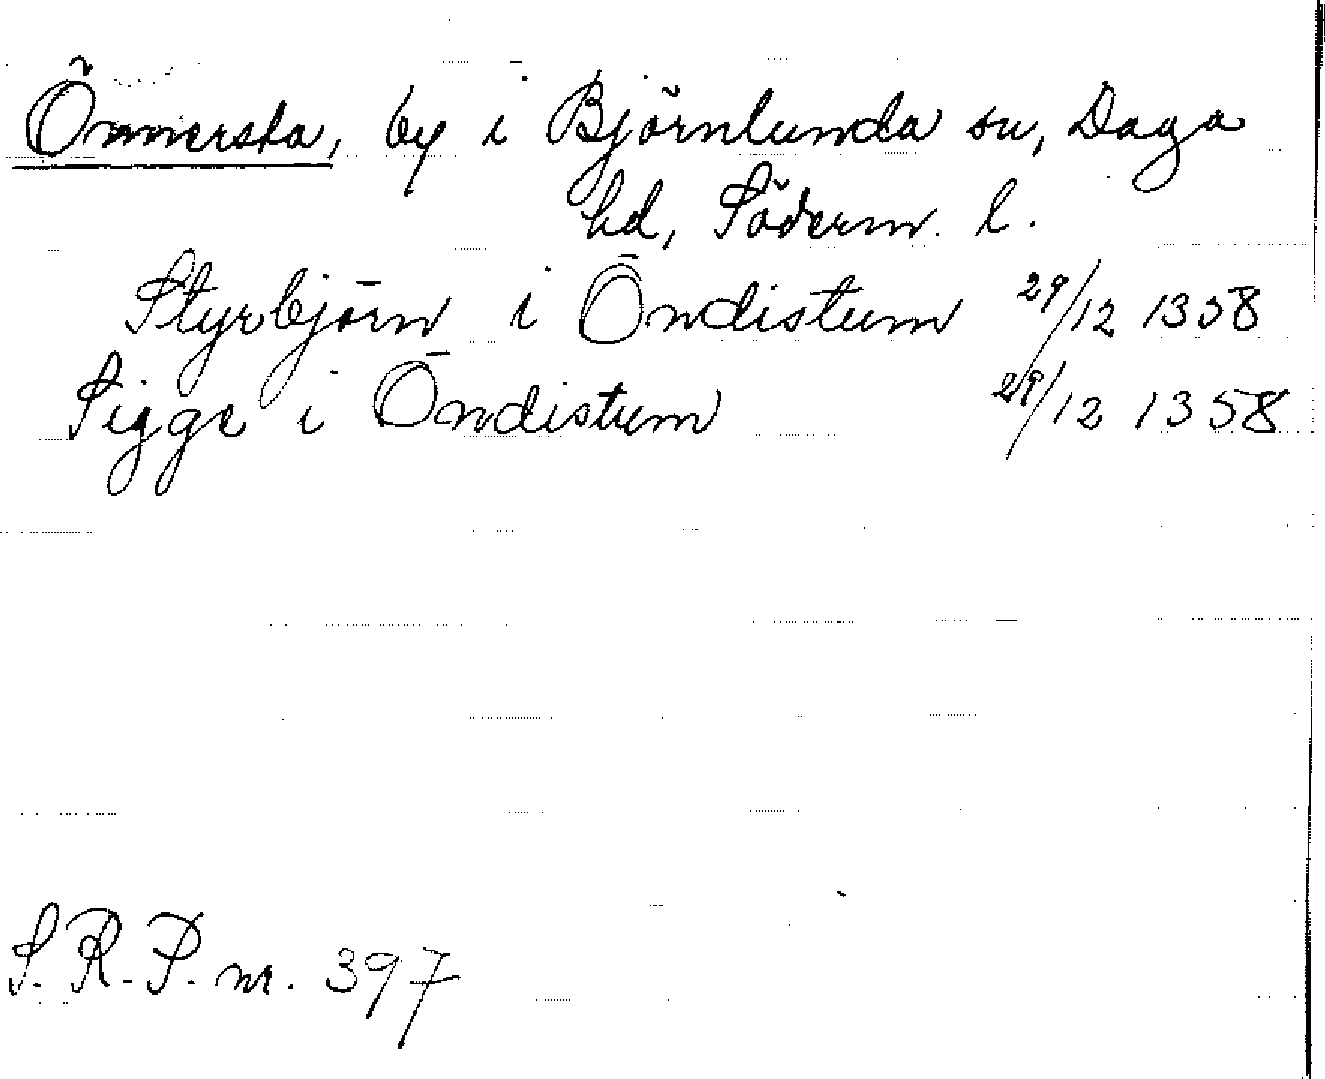 Önnersta, by i Björnlunda sn, Daga
hd, Söderm. l.
Styrbjörn i Öndistum 29/12 1358
Sigge i Öndistum 29/12 1358
S.R.P. nr. 397